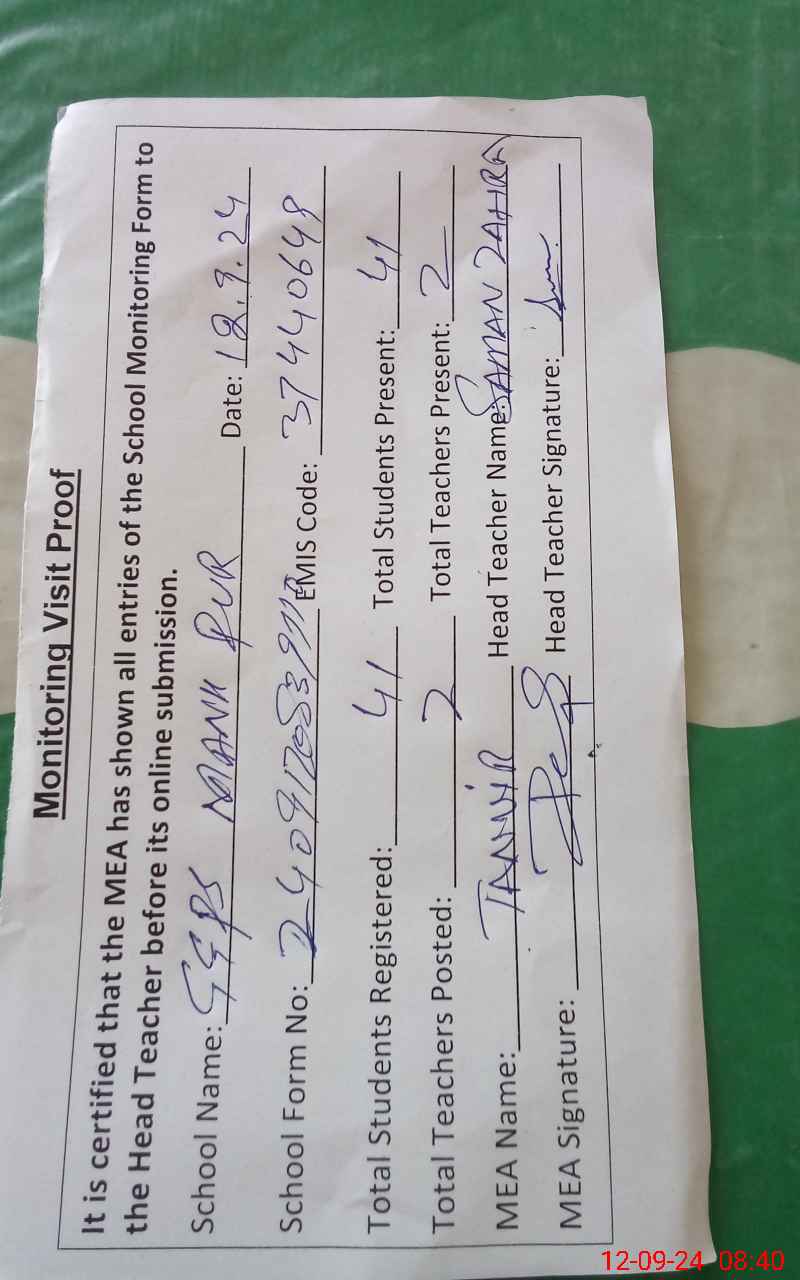 Monitoring Visit Proof
It is certified that the MEA has shown all entries of the School Monitoring Form to
the Head Teacher before its online submission.
School Name: GGPS MANK PUR Date: 12.9.24
School Form No: EMIS Code: 37440649
Total Students Registered: 41 Total Students Present: 41
Total Teachers Posted: 2 Total Teachers Present: 2
MEA Name: TANVIR Head Teacher Name: SAMAN ZAHRA
MEA Signature: Head Teacher Signature:
12-09-24 08:40